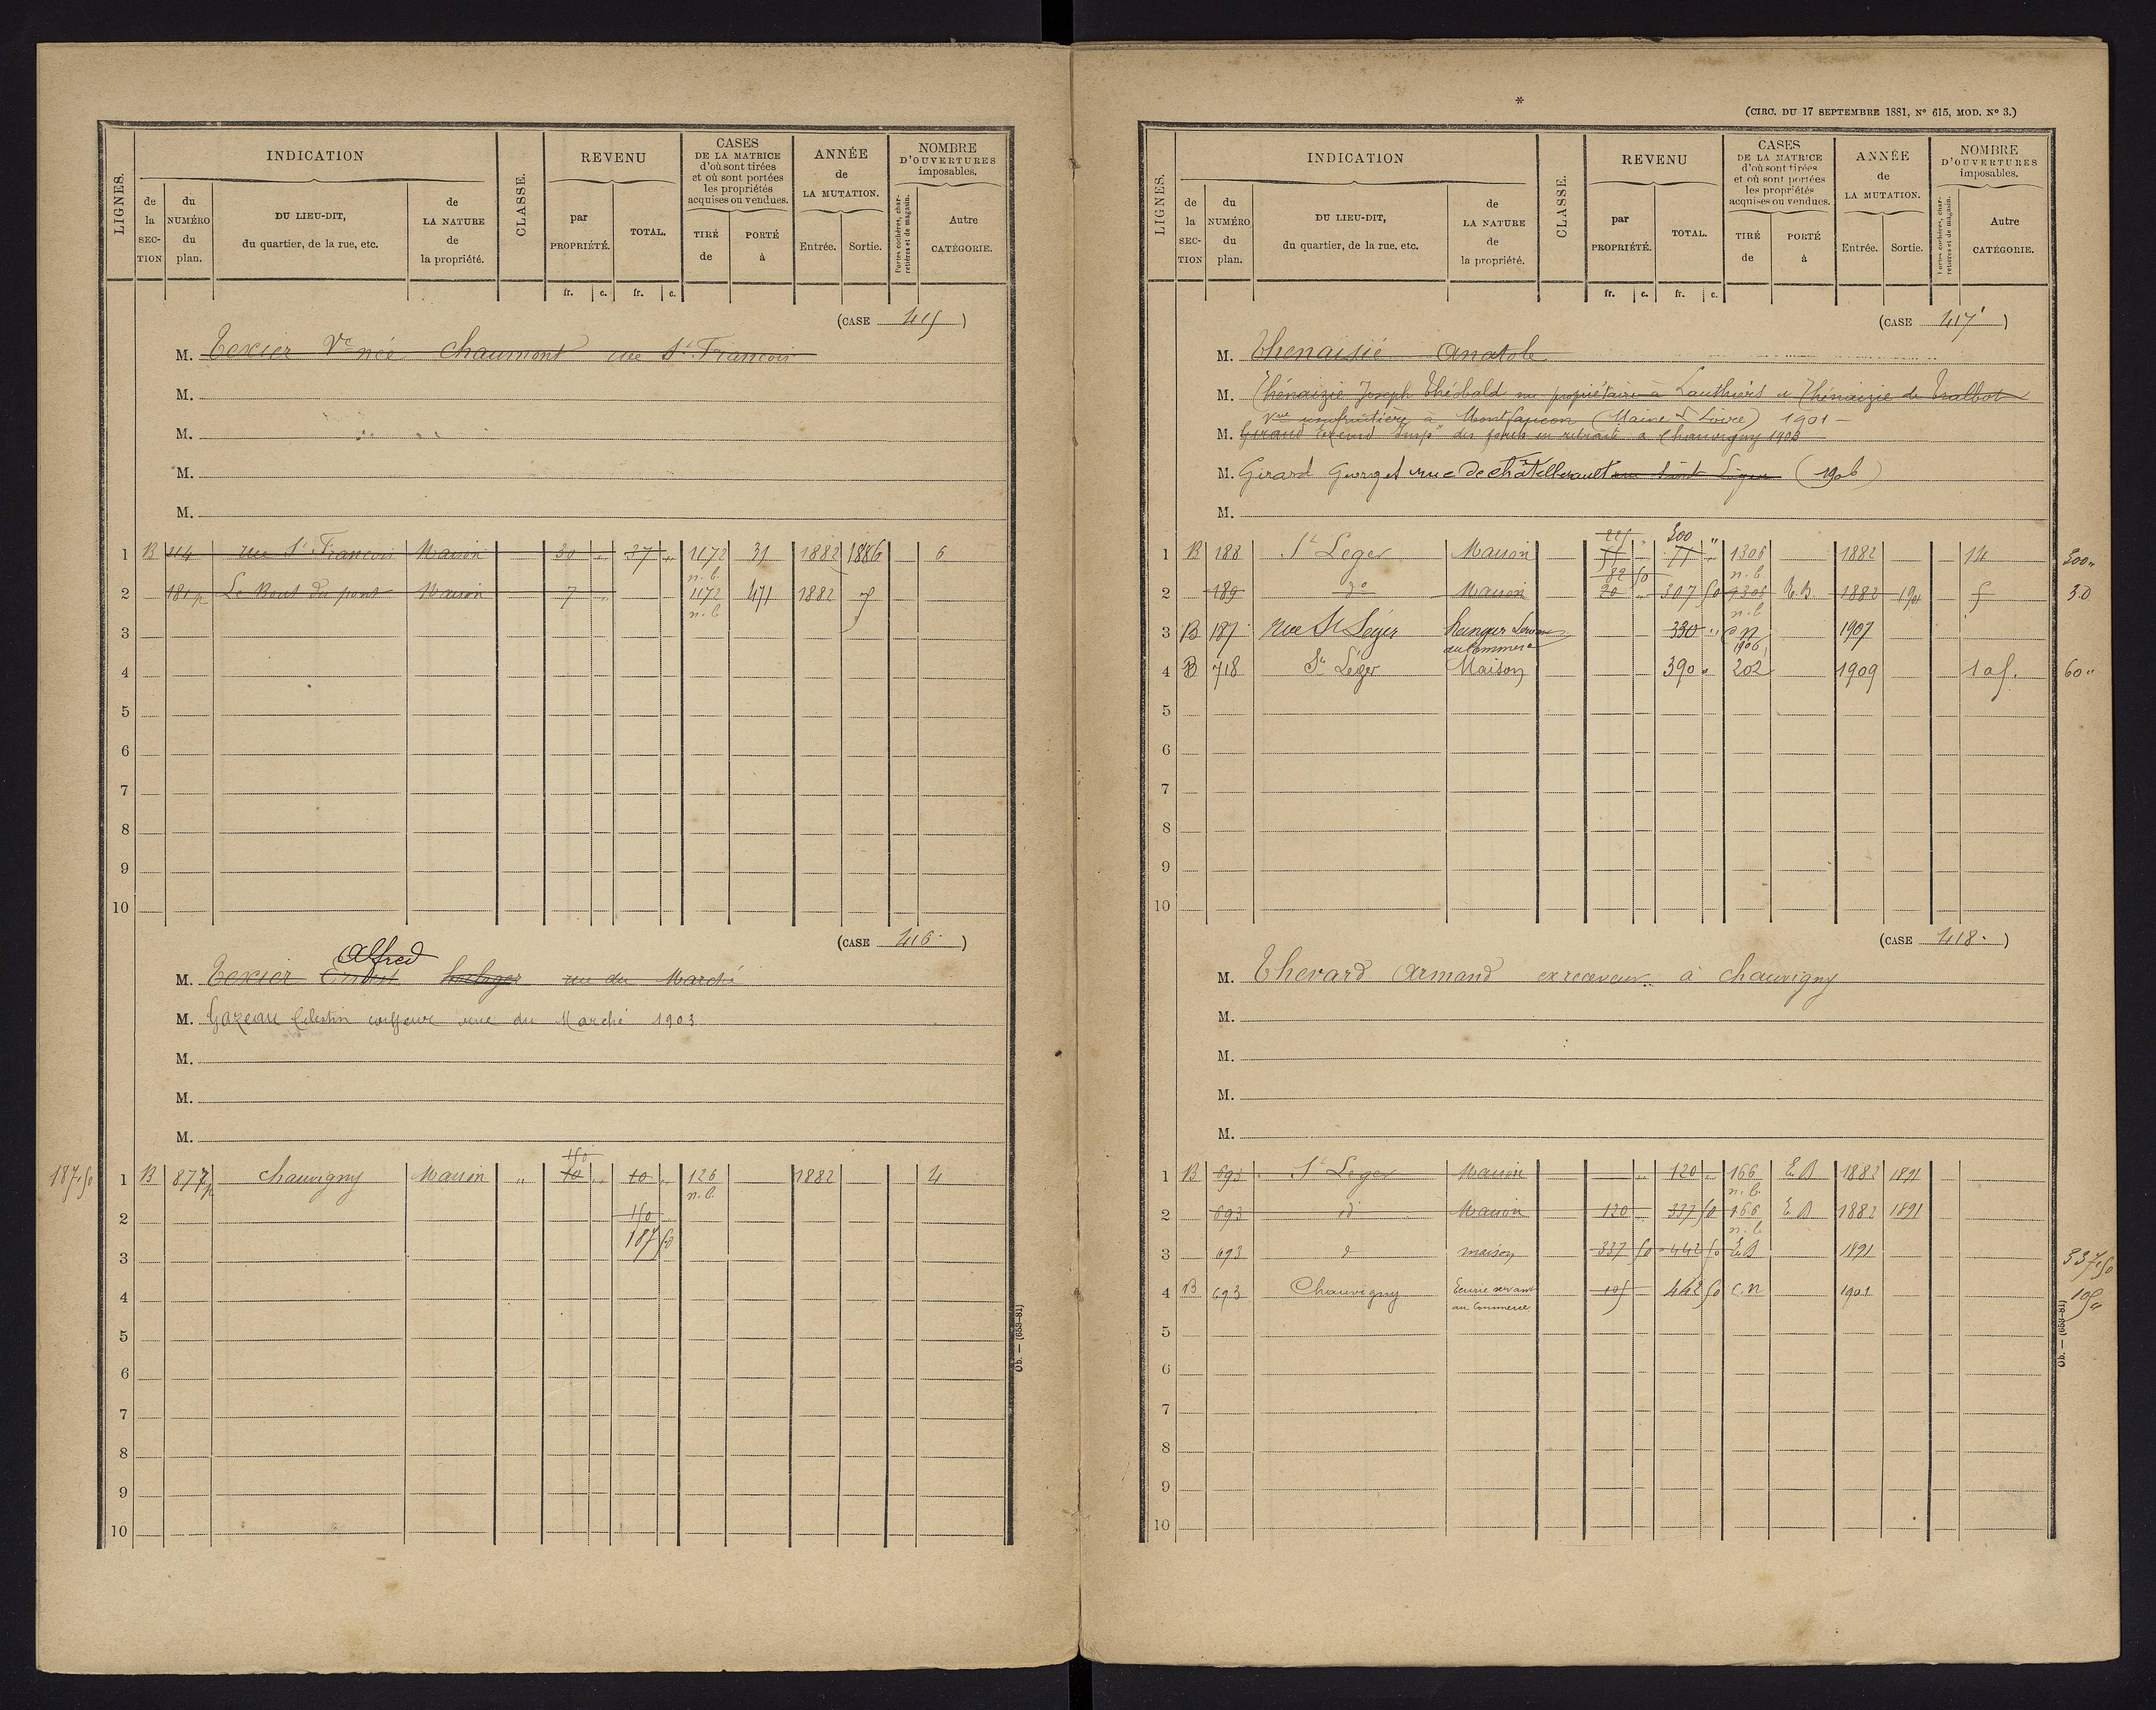 LIGNES.
INDICATION
de la SECTION
du NUMÉRO du plan.
DU LIEU-DIT, du quartier, de la rue, etc.
de LA NATURE de la propriété.
CLASSE.
REVENU
par PROPRIÉTÉ.
TOTAL.
fr. c. fr. c.
CASES DE LA MATRICE d'où sont tirées et où sont portées les propriétés acquises ou vendues.
TIRÉ de
PORTÉ à
ANNÉE de LA MUTATION.
Entrée. Sortie.
NOMBRE D'OUVERTURES imposables.
Portes cochères, charretières et de magasin.
Autre CATÉGORIE.
(CASE 415)
M. Texier Ve née Chaumont rue St Francois
M.
M.
M.
M.
1 B 414 rue St Francois Maison 30 " 37 " 1172 31 1882 1886 6
n.b.
2 181 p Le Bout du pont Maison 7 " 1172 471 1882
n.b
3
4
5
6
7
8
9
10
(CASE 416.)
Alfred
M. Texier Ernest horloger rue du Marché
M. Gazeau Celestin coiffeur rue du Marché 1903
M.
M.
M.
150
187.50 1 B 877p Chauvigny Maison " 10 " 10 " 126 1882 4
n.b.
2 150
187 50
3
4
5
6
7
8
9
10
Ob. — (653-81)
*
(CIRC. DU 17 SEPTEMBRE 1881, N° 615, MOD. N° 3.)
LIGNES.
INDICATION
de la SECTION
du NUMÉRO du plan.
DU LIEU-DIT, du quartier, de la rue, etc.
de LA NATURE de la propriété.
CLASSE.
REVENU
par PROPRIÉTÉ.
TOTAL.
fr. c. fr. c.
CASES DE LA MATRICE d'où sont tirées et où sont portées les propriétés acquises ou vendues.
TIRÉ de
PORTÉ à
ANNÉE de LA MUTATION.
Entrée. Sortie.
NOMBRE D'OUVERTURES imposables.
Portes cochères, charretières et de magasin.
Autre CATÉGORIE.
(CASE 417)
M. Thenaisié Anatole
M. Thénaizie Joseph Théobald nu propriétaire à Lauthiers et Thénaizie de Tralbot
Vve usufruitière à Montfaucon (Maine & Loire) 1901
M. Giraud Insp. des forets en retraite à Chauvigny 1903
M. Girard Georget rue de Châtellerault rue Saint Léger (1906)
M.
225 " 300 "
1 B 188 St Leger Maison 1306 1882 14 300"
82 50 n.b.
2 189 do Maison 20 " 307 50 1306 R.B. 1882 190 5 30
n.b
3 B 187 Rue St Léger hangar servant au Commerce 330 " c n 1907
1906
4 B 718 St Léger Maison 390 " 202 1909 60"
5
6
7
8
9
10
(CASE 418.)
M. Thevard Armand ex receveur à Chauvigny
M.
M.
M.
M.
1 B 693 St Leger Maison " 120 " 166 E.B 1882 1891
n.b.
2 693 id Maison 120 " 337 50 166 E.B 1882 1891
n.b.
3 693 d maison 337 50 442 50 E.B 1891 337.50
4 B 693 Chauvigny Ecurie servant au Commerce 105 442 50 c.n 1901 105"
5
6
7
8
9
10
Ob. — (653-81)